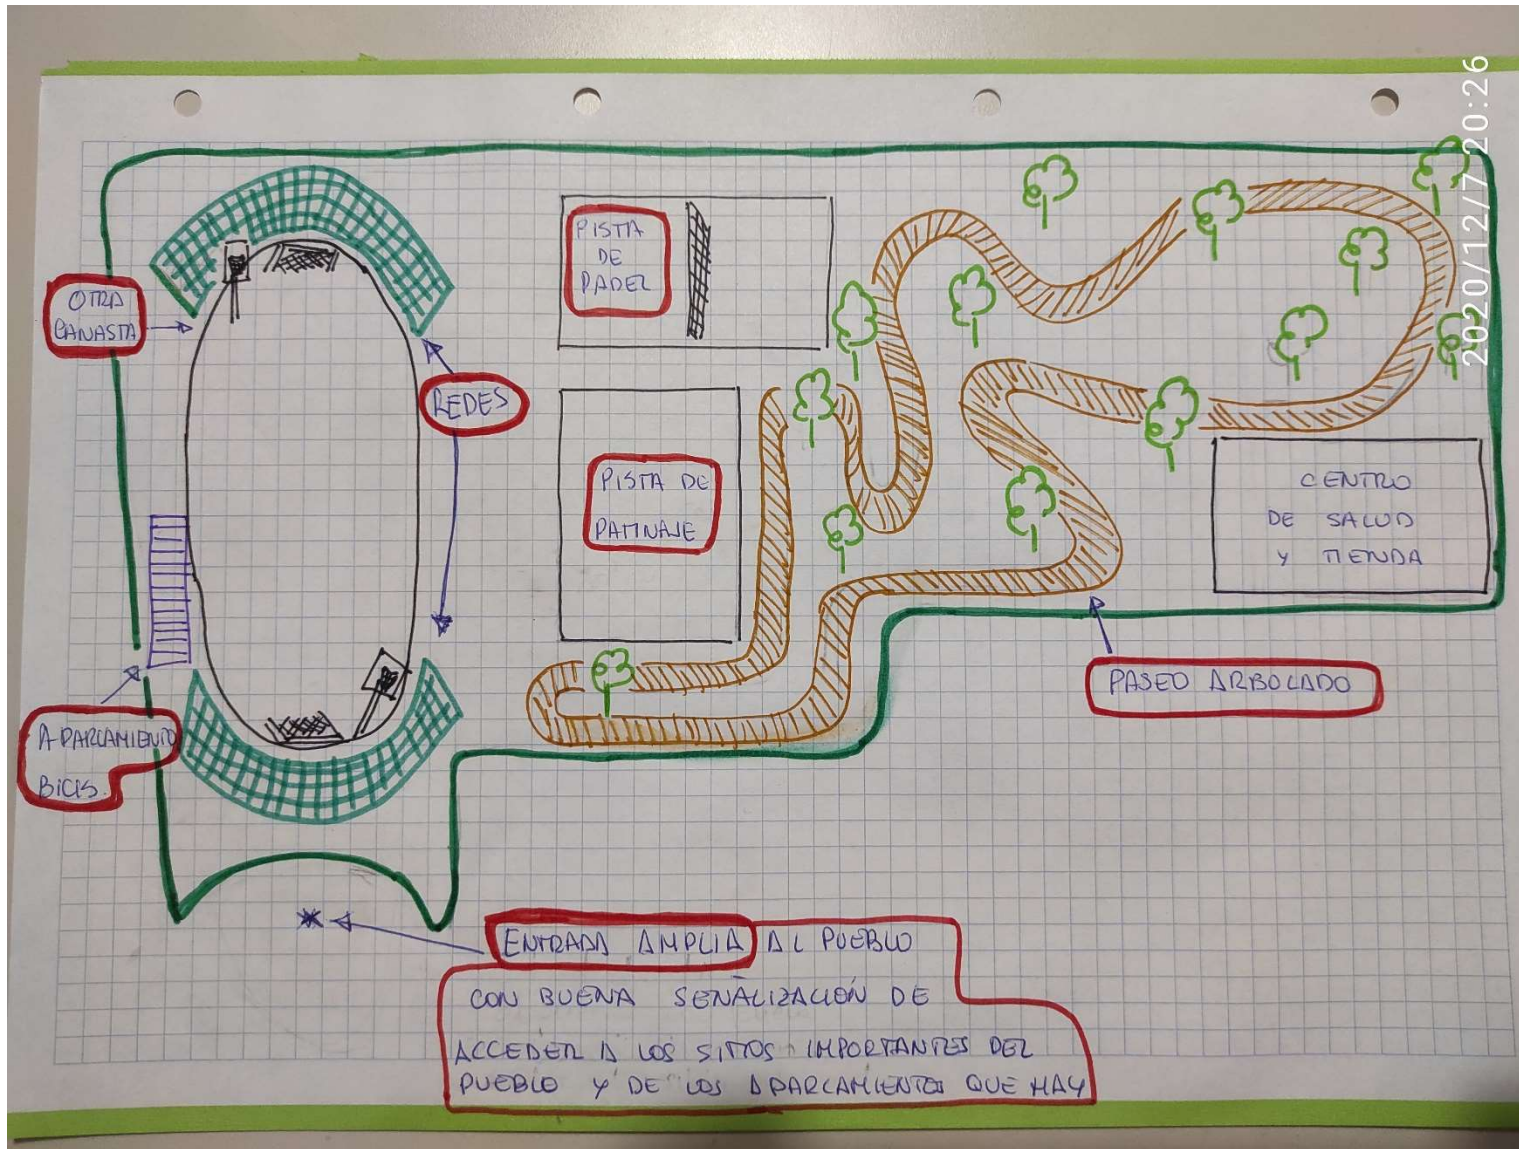 2020/12/7 20:26
PISTA
DE
PADEL
OTRA
CANASTA
REDES
PISTA DE
PATINAJE
CENTRO
DE SALUD
Y TIENDA
PASEO ARBOLADO
APARCAMIENTO
BICIS.
ENTRADA AMPLIA AL PUEBLO
CON BUENA SEÑALIZACIÓN DE
ACCEDER A LOS SITIOS IMPORTANTES DEL
PUEBLO Y DE LOS APARCAMIENTOS QUE HAY